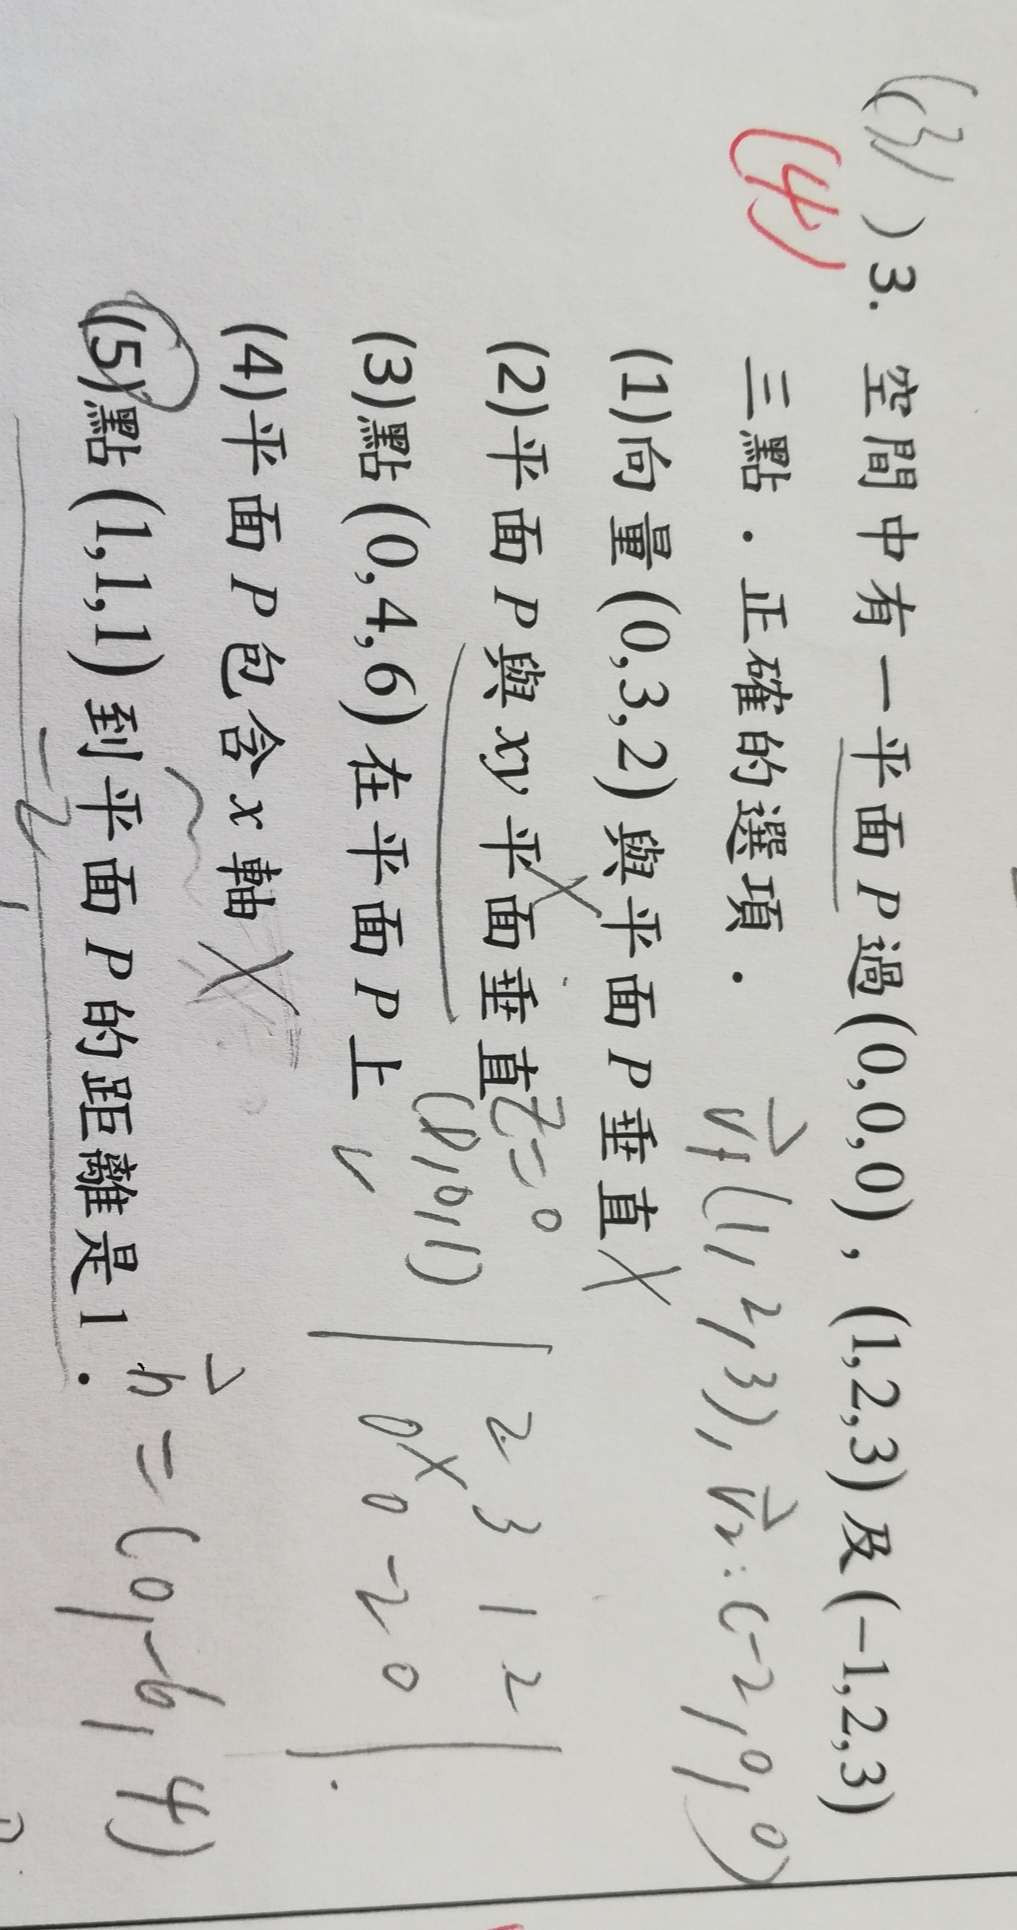 (3) )3. 空間中有一平面P過(0,0,0), (1,2,3)及(-1,2,3)
(4)
三點.正確的選項.
V₁(1,2,3), V₂:(-2,0,0)
(1)向量(0,3,2)與平面P垂直 X
(2)平面P與xy平面垂直 X
z=0
(0,0,1)
(3)點(0,4,6)在平面P上 ✓
2 3 1 2
0 0 -2 0
(4)平面P包含x軸 X
(5)點(1,1,1)到平面P的距離是1.
n=(0,-6,4)
-2